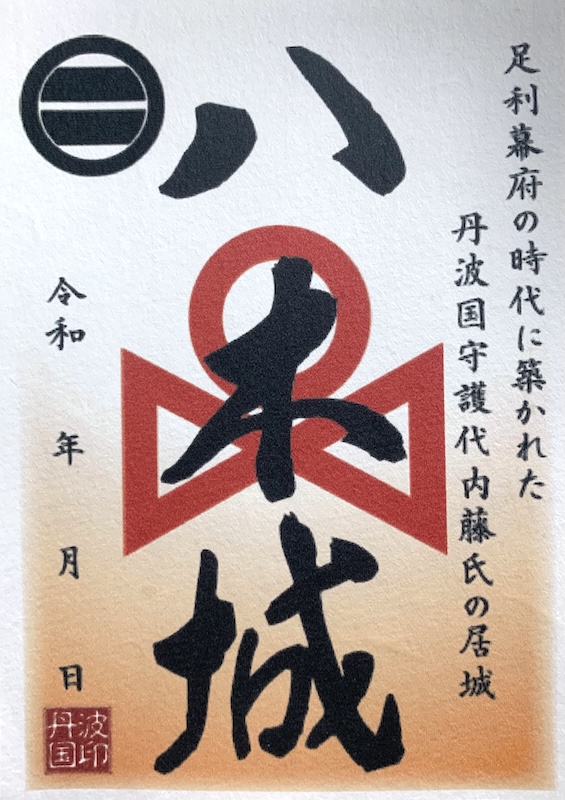 足利幕府の時代に築かれた
丹波国守護代内藤氏の居城
八木城
令和 年 月 日
波印
丹国